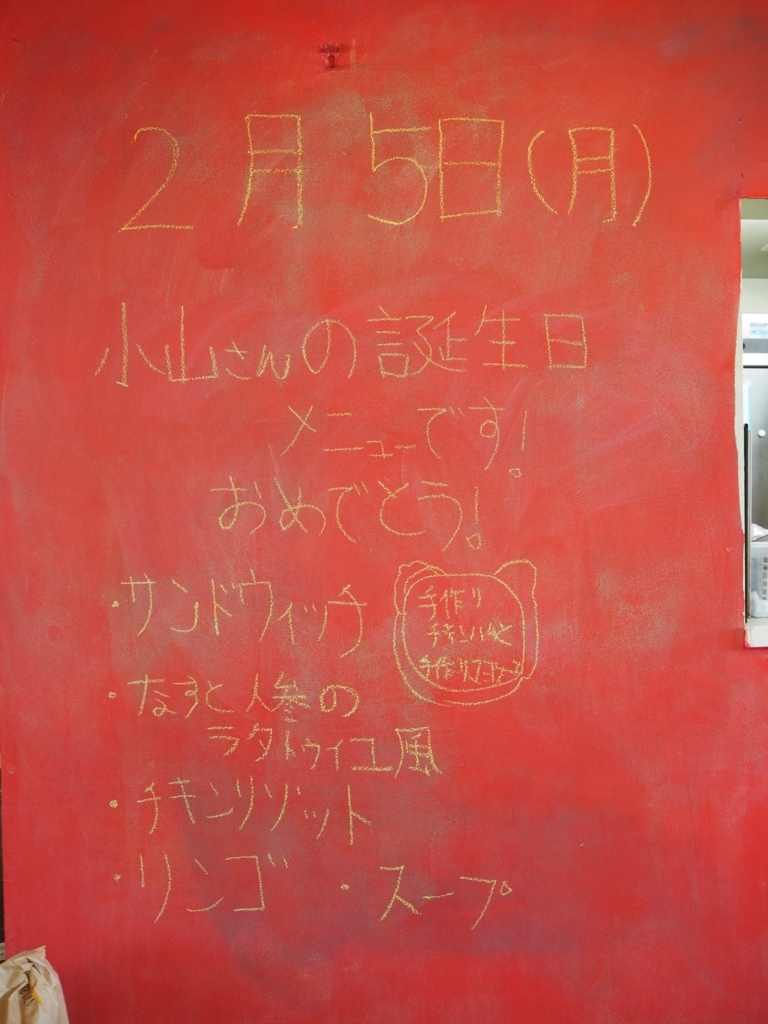 2月5日(月)
小山さんの誕生日
メニューです!
おめでとう!
・サンドウィッチ
手作り
チキンハムと
手作りマヨソース
・なすと人参の
ラタトゥイユ風
・チキンリゾット
・リンゴ ・スープ